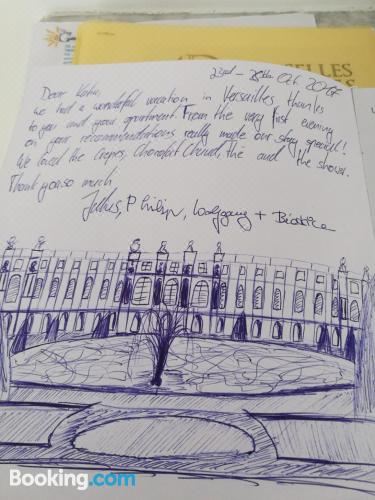 SELLES
23rd - 28th Oct 20
Dear Katia,
we had a wonderful vacation in Versailles, thanks
to you and your apartment. From the very first evening
on your recommendations really made our stay special!
We loved the Crepes, Chocolat Chaud, the and the shows.
Thank you so much
Julius, Philipp, Wolfgang + Beatrice
Booking.com